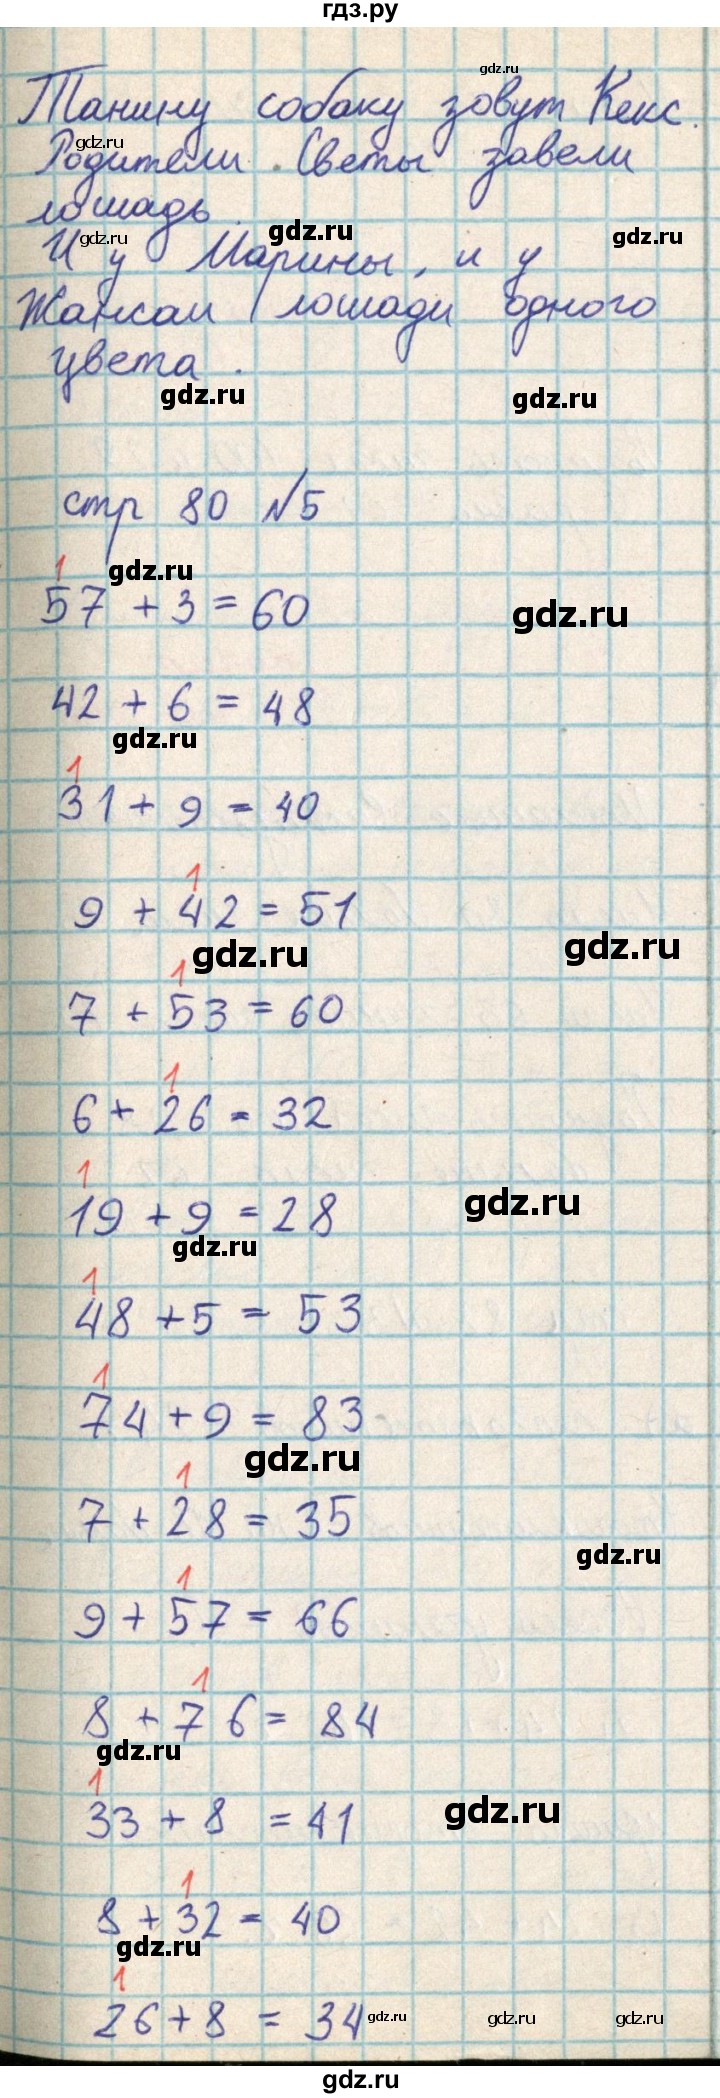 гдз.ру
gdz.ru
Танину собаку зовут Кекс.
gdz.ru
Родители Светы завели
лошадь.
gdz.ru
gdz.ru
gdz.ru
И у Марины, и у
Жансаи лошади одного
цвета.
gdz.ru
gdz.ru
стр 80 №5
1
gdz.ru
57 + 3 = 60
gdz.ru
42 + 6 = 48
gdz.ru
1
31 + 9 = 40
1
9 + 42 = 51
gdz.ru
gdz.ru
1
7 + 53 = 60
1
6 + 26 = 32
1
gdz.ru
19 + 9 = 28
gdz.ru
1
48 + 5 = 53
1
74 + 9 = 83
gdz.ru
1
7 + 28 = 35
gdz.ru
1
9 + 57 = 66
1
8 + 76 = 84
gdz.ru
1
33 + 8 = 41
gdz.ru
1
8 + 32 = 40
gdz.ru
1
26 + 8 = 34
gdz.ru
gdz.ru
gdz.ru
gdz.ru